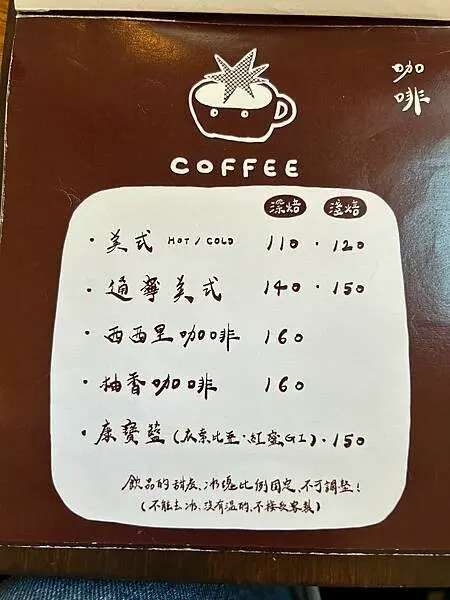 咖啡
COFFEE
深焙 淺焙
・美式 HOT/COLD 110・120
・通寧美式 140・150
・西西里咖啡 160
・柚香咖啡 160
・康寶藍(衣索比亞・紅蜜G1)・150
飲品的甜度、冰塊比例固定、不可調整!
(不能去冰、沒有溫的、不接受客製)